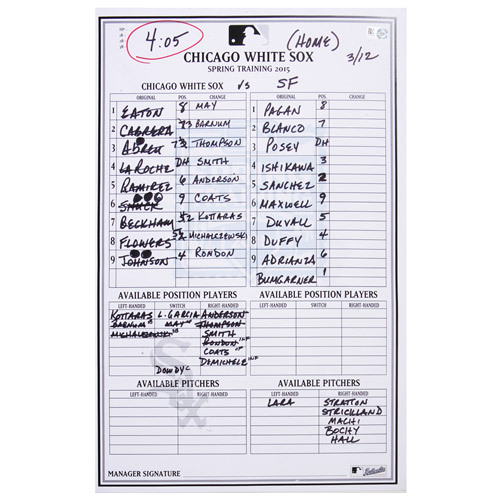 4:05
(HOME)
CHICAGO WHITE SOX
SPRING TRAINING 2015
3/12
CHICAGO WHITE SOX VS SF
ORIGINAL POS. CHANGE ORIGINAL POS. CHANGE
1 EATON 8 MAY 1 PAGAN 8
2 CABRERA 7 BARNUM 2 BLANCO 7
3 ABREU 3 THOMPSON 3 POSEY DH
4 LAROCHE DH SMITH 4 ISHIKAWA 3
5 RAMIREZ 6 ANDERSON 5 SANCHEZ 2
6 9 COATS 6 MAXWELL 9
7 BECKHAM KOTTARAS 7 DUVALL 5
8 FLOWERS MICHALCZEWSKI 8 DUFFY 4
9 JOHNSON 4 RONDON 9 ADRIANZA 6
BUMGARNER 1
AVAILABLE POSITION PLAYERS AVAILABLE POSITION PLAYERS
LEFT-HANDED SWITCH RIGHT-HANDED LEFT-HANDED SWITCH RIGHT-HANDED
KOTTARAS L. GARCIA ANDERSON
BARNUM MAY THOMPSON
MICHALCZEWSKI SMITH
RONDON INF
COATS OF
DOWDY C DEMICHELE INF
AVAILABLE PITCHERS AVAILABLE PITCHERS
LEFT-HANDED RIGHT-HANDED LEFT-HANDED RIGHT-HANDED
LARA STRATTON
STRICKLAND
MACHI
BOCHY
HALL
MANAGER SIGNATURE